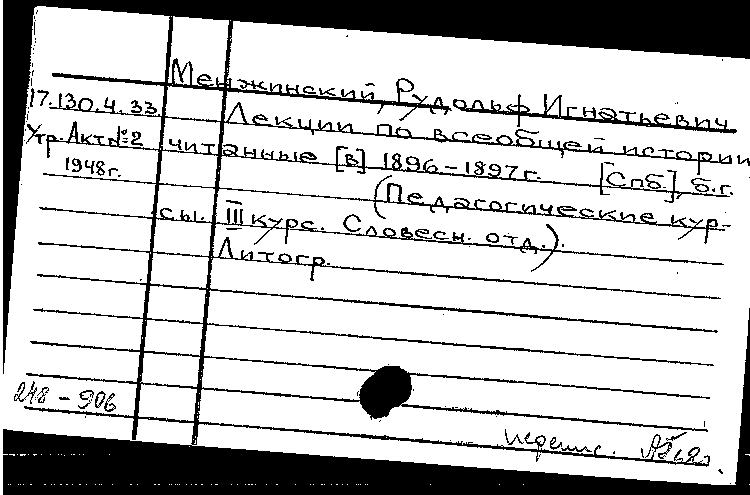 Менжинский, Рудольф Игнатьевич
17.130.4.33. Лекции по всеобщей истории,
Утр. Акт №2 читанные [в] 1896-1897г. [Спб], б.г.
1948г. (Педагогические кур-
сы. III курс. Словесн. отд.).
Литогр.
248-906